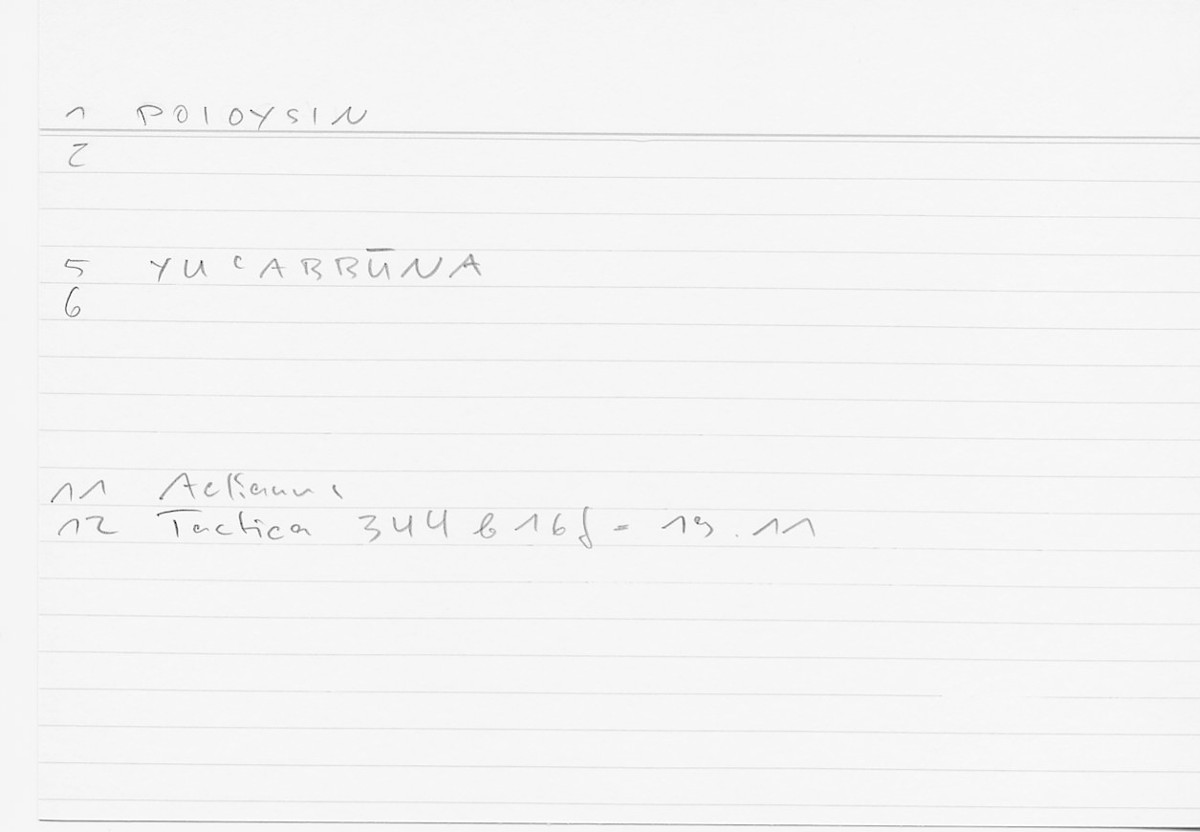 1 POIOYSIN
2
5 YU ʿARRŪNA
6
11 Aelianus
12 Tactica 344 b 16f = 19.11